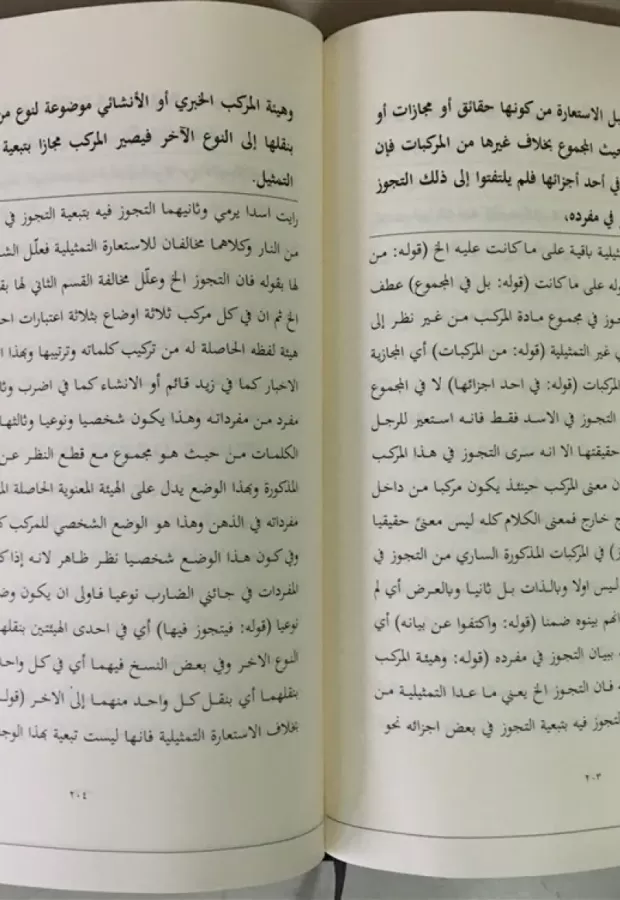 بل الاستعارة من كونها حقائق أو مجازات أو
المجموع بخلاف غيرها من المركبات فإن
في أحد أجزائها فلم يلتفتوا إلى ذلك التجوز
في مفرده،
باقية على ما كانت عليه الخ (قوله: من
على ما كانت (قوله: بل في المجموع) عطف
في مجموع مادة المركب من غير نظر إلى
غير التمثيلية (قوله: من المركبات) أي المجازية
المركبات (قوله: في احد اجزائها) لا في المجموع
التجوز في الاسد فقط فانه استعير للرجل
حقيقتها الا انه سرى التجوز في هذا المركب
معنى المركب حينئذ يكون مركبا من داخل
خارج فمعنى الكلام كله ليس معنىً حقيقيا
في المركبات المذكورة الساري من التجوز في
ليس اولا وبالذات بل ثانيا وبالعرض أي لم
بينوه ضمنا (قوله: واكتفوا عن بيانه) أي
ببيان التجوز في مفرده (قوله: وهيئة المركب
فان التجوز الخ يعني ما عدا التمثيلية من
التجوز فيه بتبعية التجوز في بعض اجزائه نحو
٢٠٣
وهيئة المركب الخبري أو الأنشائي موضوعة لنوع من
بنقلها إلى النوع الآخر فيصير المركب مجازا بتبعية
التمثيل.
رايت اسدا يرمي وثانيهما التجوز فيه بتبعية التجوز في
من النار وكلاهما مخالفان للاستعارة التمثيلية فعلّل
لها بقوله فان التجوز الخ وعلّل مخالفة القسم الثاني لها
الخ ثم ان في كل مركب ثلاثة اوضاع بثلاثة اعتبارات
هيئة لفظه الحاصلة له من تركيب كلماته وترتيبها وبهذا
الاخبار كما في زيد قائم أو الانشاء كما في اضرب
مفرد من مفرداته وهذا يكون شخصيا ونوعيا وثالثها
الكلمات من حيث هو مجموع مع قطع النظر عن
المذكورة وبهذا الوضع يدل على الهيئة المعنوية الحاصلة
مفرداته في الذهن وهذا هو الوضع الشخصي للمركب
وفي كون هذا الوضع شخصيا نظر ظاهر لانه إذا
المفردات في جائني الضارب نوعيا فاولى ان يكون
نوعيا (قوله: فيتجوز فيها) أي في احدى الهيئتين بنقلها
النوع الاخر وفي بعض النسخ فيهما أي في كل
بنقلهما أي بنقل كل واحد منهما إلى الاخر
بخلاف الاستعارة التمثيلية فانها ليست تبعية بهذا
٢٠٤